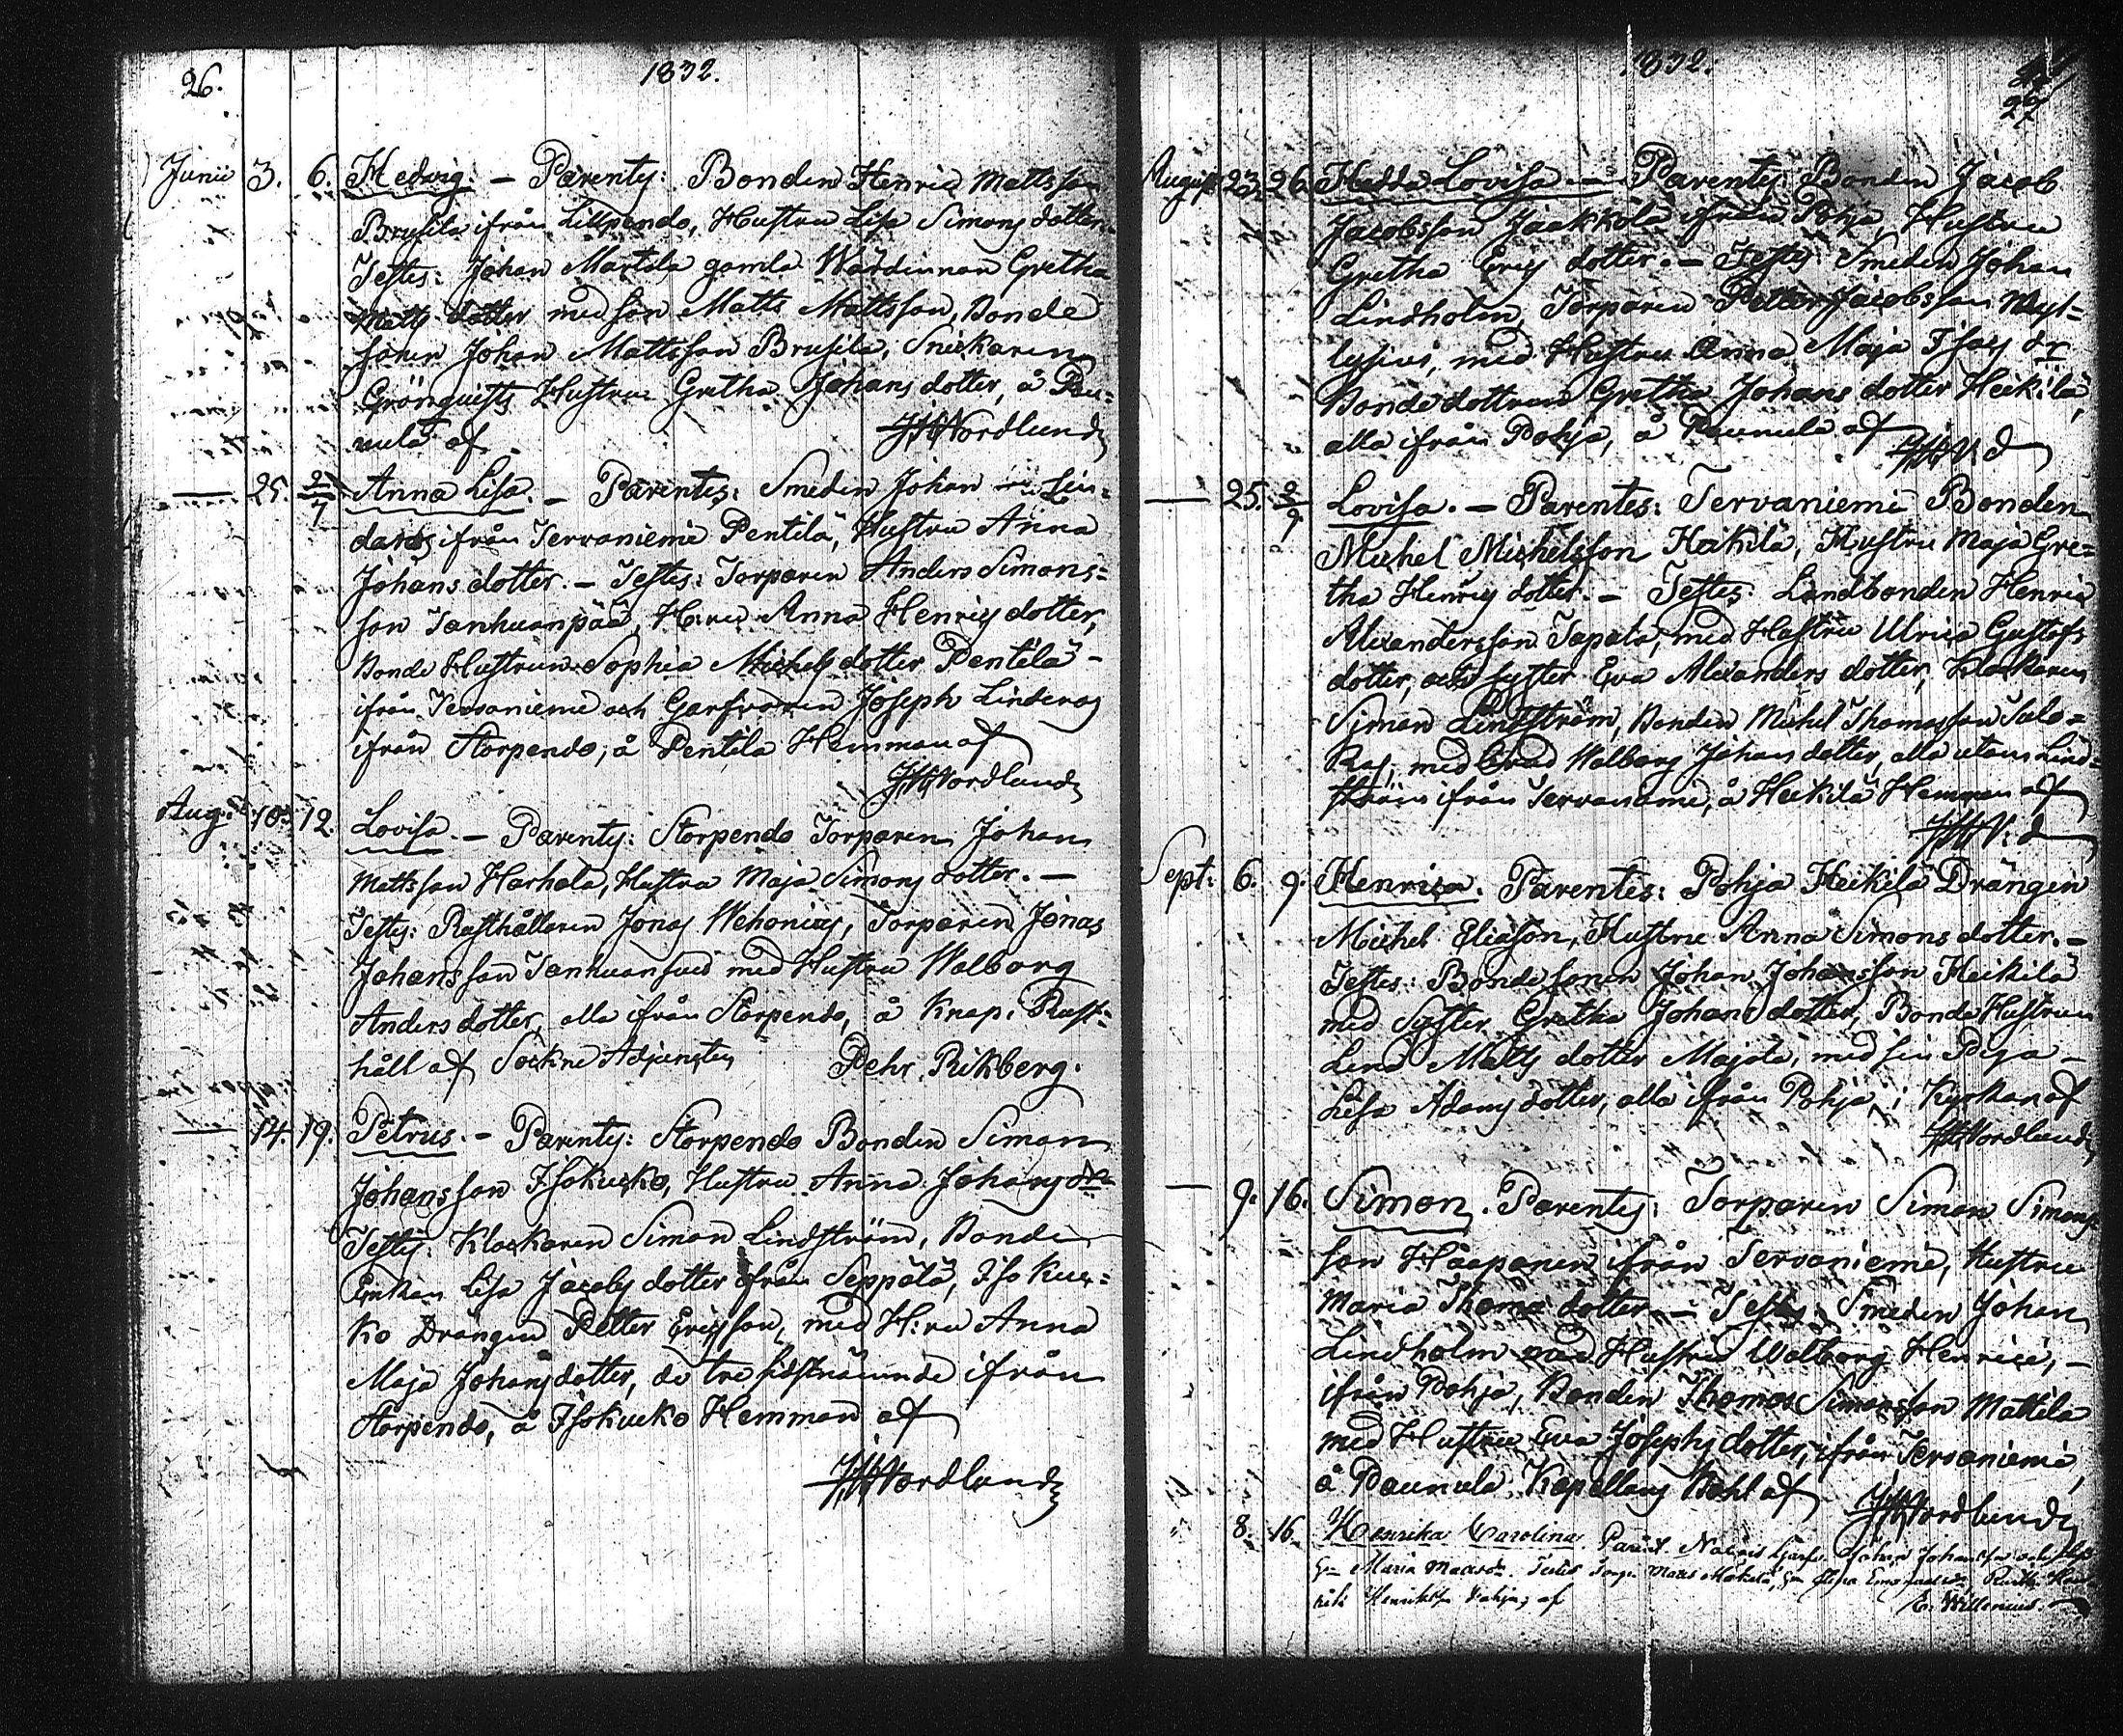 26.
1832.
Junii 3. 6. Hedvig. - Parentes: Bonden Henric Mattsson
Brusila ifrån Lillpendo, Hustru Lisa Simons dotter.
Testes: Johan Martila gamla Wärdinnan Gretha
Matts dotter med son Matts Mattsson, Bonde
sonen Johan Mattsson Brusila, Snickaren
Grönquists Hustru Gretha Johans dotter, å Pau=
nula af J H Nordlund
— 25. 2/7 Anna Lisa. - Parentes: Smeden Johan Lin=
ifrån Tervaniemi Pentilä, Hustru Anna
Johans dotter. - Testes: Torparen Anders Simons=
son Tanhuanpää, H:tru Anna Henrics dotter,
Bonde Hustrun Sophia Michels dotter Pentilä -
ifrån Tervaniemi och Garfvaren Joseph
ifrån Storpendo, å Pentilä Hemman af
J H Nordlund
Aug: 10. 12. Lovisa. - Parentes: Storpendo Torparen Johan
Mattsson Harhala, Hustru Maja Simons dotter. -
Testes: Rusthållaren Jonas Torparen Jonas
Johansson Tanhuansuu med Hustru Walborg
Anders dotter, alla ifrån Storpendo, å Knapi Rust=
håll af Sockne Adjuncten Pehr Rikberg.
— 14. 19. Petrus. - Parentes: Storpendo Bonden Simon
Johansson Isokucko, Hustru Anna Johans dr
Testes: Klockaren Simon Lindström, Bonde
Enkan Lisa Jacobs dotter ifrån Seppälä, Isokuc=
ko Drängen Petter Ericsson, med H:ru Anna
Maja Johans dotter, de tre sistnämnde ifrån
Storpendo, å Isokucko Hemman af
J H Nordlund
1832.
27
August. 23. 26. Hedda Lovisa. - Parentes: Bonden Jacob
Jacobsson Jaakkola ifrån Pohja, Hustru
Gretha Erics dotter. - Testes: Smeden Johan
Lindholm, Torparen Petter Jacobsson
med Hustru Anna Maja Isacs dr
Bonde dottren Gretha Johans dotter Heikilä,
alla ifrån Pohja, å Paunula af J H N:d
— 25. 2/9 Lovisa. - Parentes: Tervaniemi Bonden
Michel Michelsson Heikilä, Hustru Maja Gre=
tha Henrics dotter. - Testes: Landbonden Henric
Alexandersson Tapala, med Hustru Ulrica Gustafs
dotter, och syster Eva Alexanders dotter, Klockaren
Simon Lindström, Bonden Michel Thomasson
med Walborg Johans dotter, alla utom Lind=
ström ifrån Tervaniemi, å Heikilä Hemman af
J H N:d
Sept: 6. 9. Henrica. Parentes: Pohja Heikilä Drängen
Michel Eliasson, Hustru Anna Simons dotter. -
Testes: Bonde sonen Johan Johansson Heikilä
med Syster Gretha Johans dotter, Bonde Hustrun
Lena Matts dotter Majala, med sin Piga -
Lisa Adams dotter, alla ifrån Pohja, i Kyrkan af
J H Nordlund
— 9. 16. Simon. Parentes: Torparen Simon Simons=
son Haapanen ifrån Tervaniemi, Hustru
Maria Thomæ dotter. - Testes: Smeden Johan
Lindholm med Hustru Walborg Henrici, -
ifrån Pohja, Bonden Thomas Simonsson Mattila
med Hustru Eva Josephs dotter, ifrån Tervaniemi,
å Paunula Kapellans Bohl af J H Nordlund
8. 16. Henrika Carolina. Parent. Johan Johansson
Maria Testes
Pohja; af